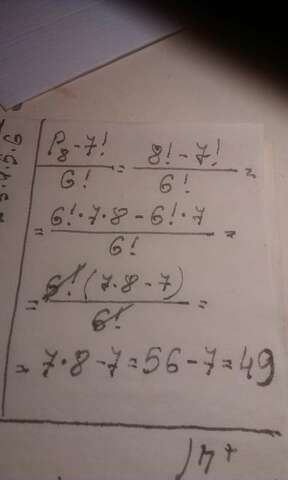 P₈-7!/6! = 8!-7!/6! =
= 6!·7·8-6!·7/6! =
= 6!(7·8-7)/6! =
= 7·8-7=56-7=49